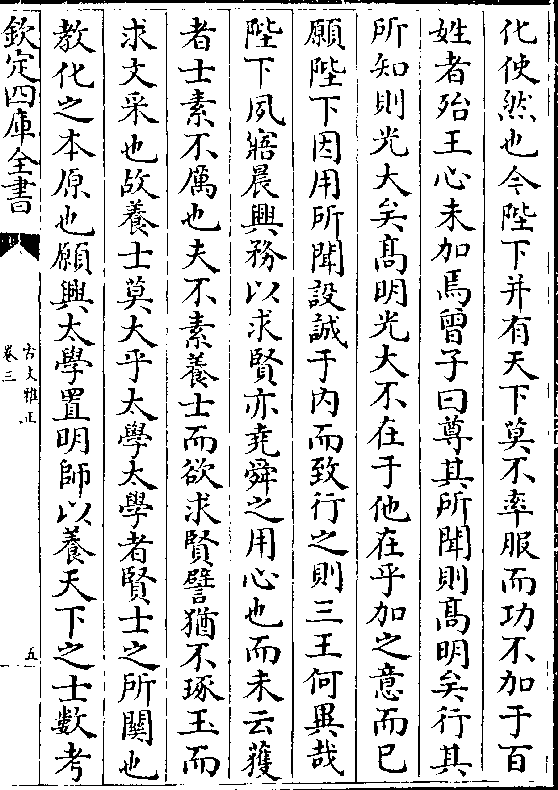 化使然也今陛下并有天下莫不率服而功不加于百
姓者殆王心未加焉曾子曰尊其所聞則髙明矣行其
所知則光大矣髙明光大不在于他在乎加之意而已
願陛下因用所聞設誠于内而致行之則三王何異哉
陛下夙寤晨興務以求賢亦堯舜之用心也而未云獲
者士素不厲也夫不素養士而欲求賢譬猶不琢玉而
求文采也故養士莫大乎太學太學者賢士之所關也
教化之本原也願興太學置明師以養天下之士數考
欽定四庫全書
古文雅正
卷三
五